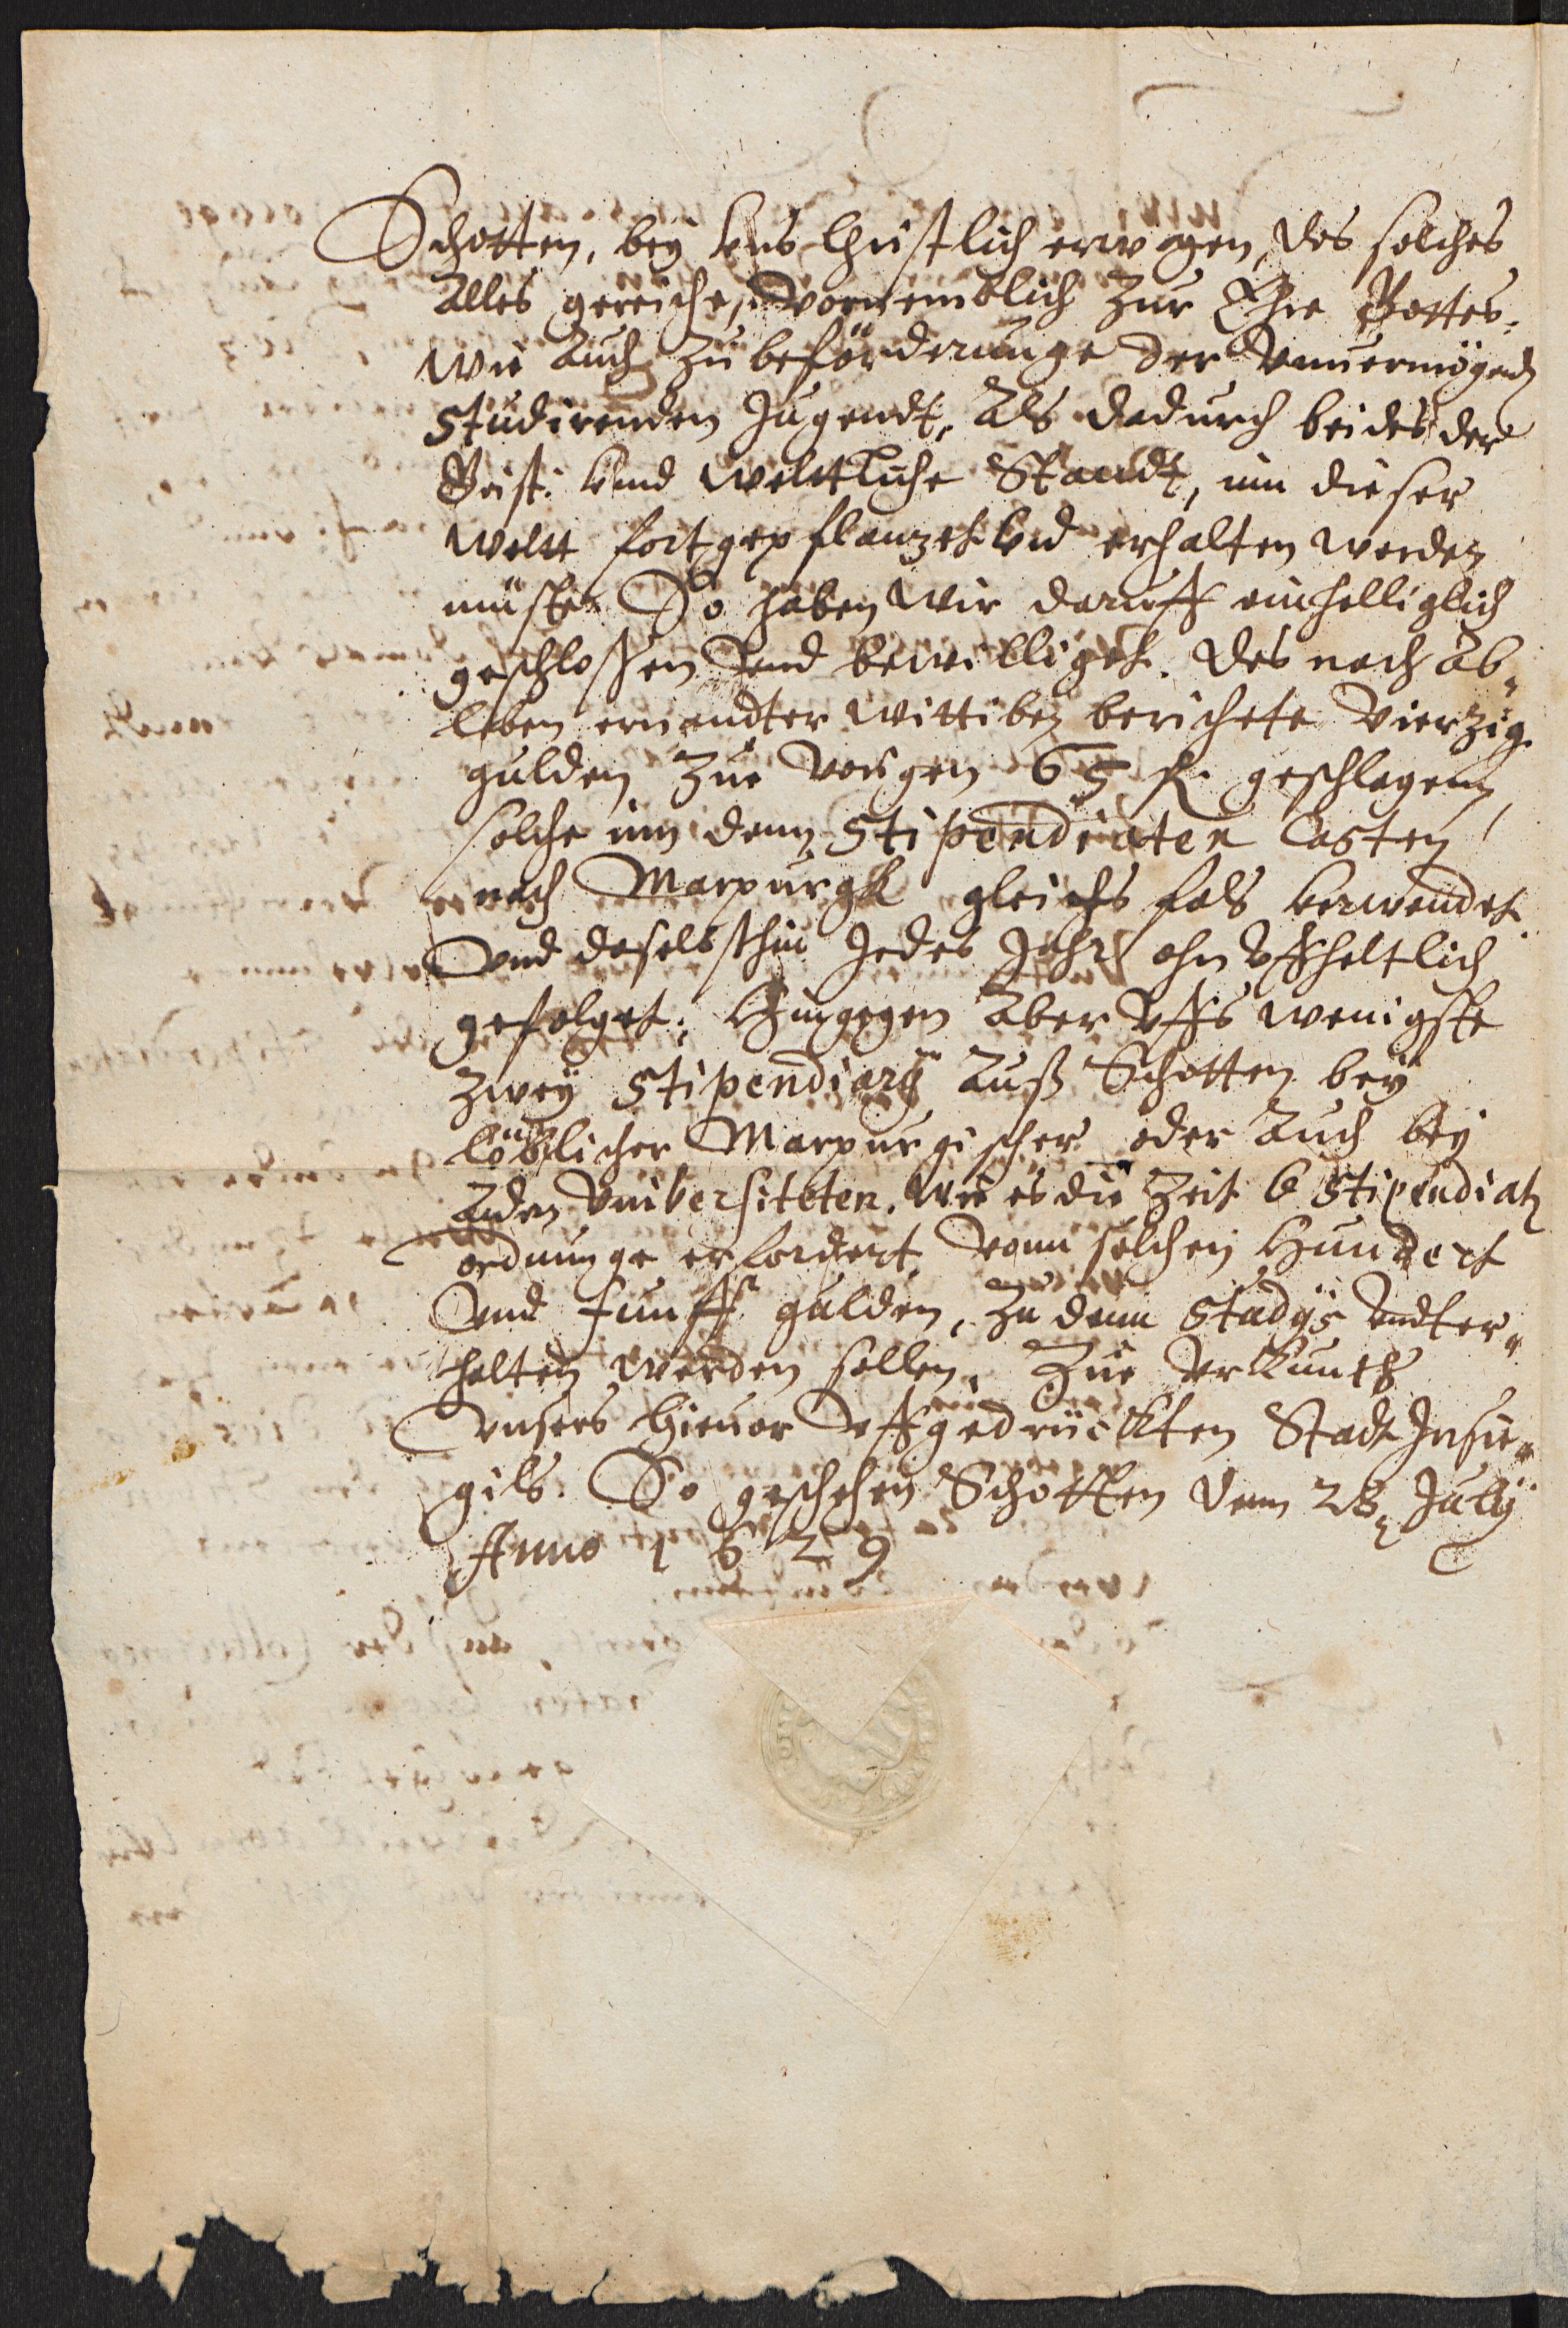 Schotten, bey vns Christlich erwogen, das solches
Alles gereiches vornemblich zur Ehre Gottes,
wie auch zu beförderunge der vnuermögend
studirenden Jugendt, Als dadurch beides der
Geist: vnd Weltliche Standt, inn dieser
Welt fortgepflanzet vnd erhalten werden
müste. So haben Wir daruff einhelliglich
geschlossen vnd bewilliget. das nach Ab„
leben ernandter Wittiben berichtete Vierzig
gulden zue vorigen 65 fl. geschlagen,
solche inn denn Stipendiaten Casten
nach Marpurgk gleichs fals verwendet
vnd daselbsthin Jedes Jahrs ohn vffheltlich
gefolget. Hingegen Aber vffs wenigste
zwey Stipendiarÿ Auß Schotten bey
löblicher Marpurgischer oder Auch bey
Andern Vniversiteten. Wie es die Zeit v Stipendiaten
ordnunge erfordert, vonn solchen Hundert
vnd funff gulden, zu denn Studÿs vndter„
halten werden sollen. Zue Vrkunth
vnsers hieuor vffgedrückten Stadt Insie„
gils. So geschehen Schotten denn 28. Julÿ
Anno 1629